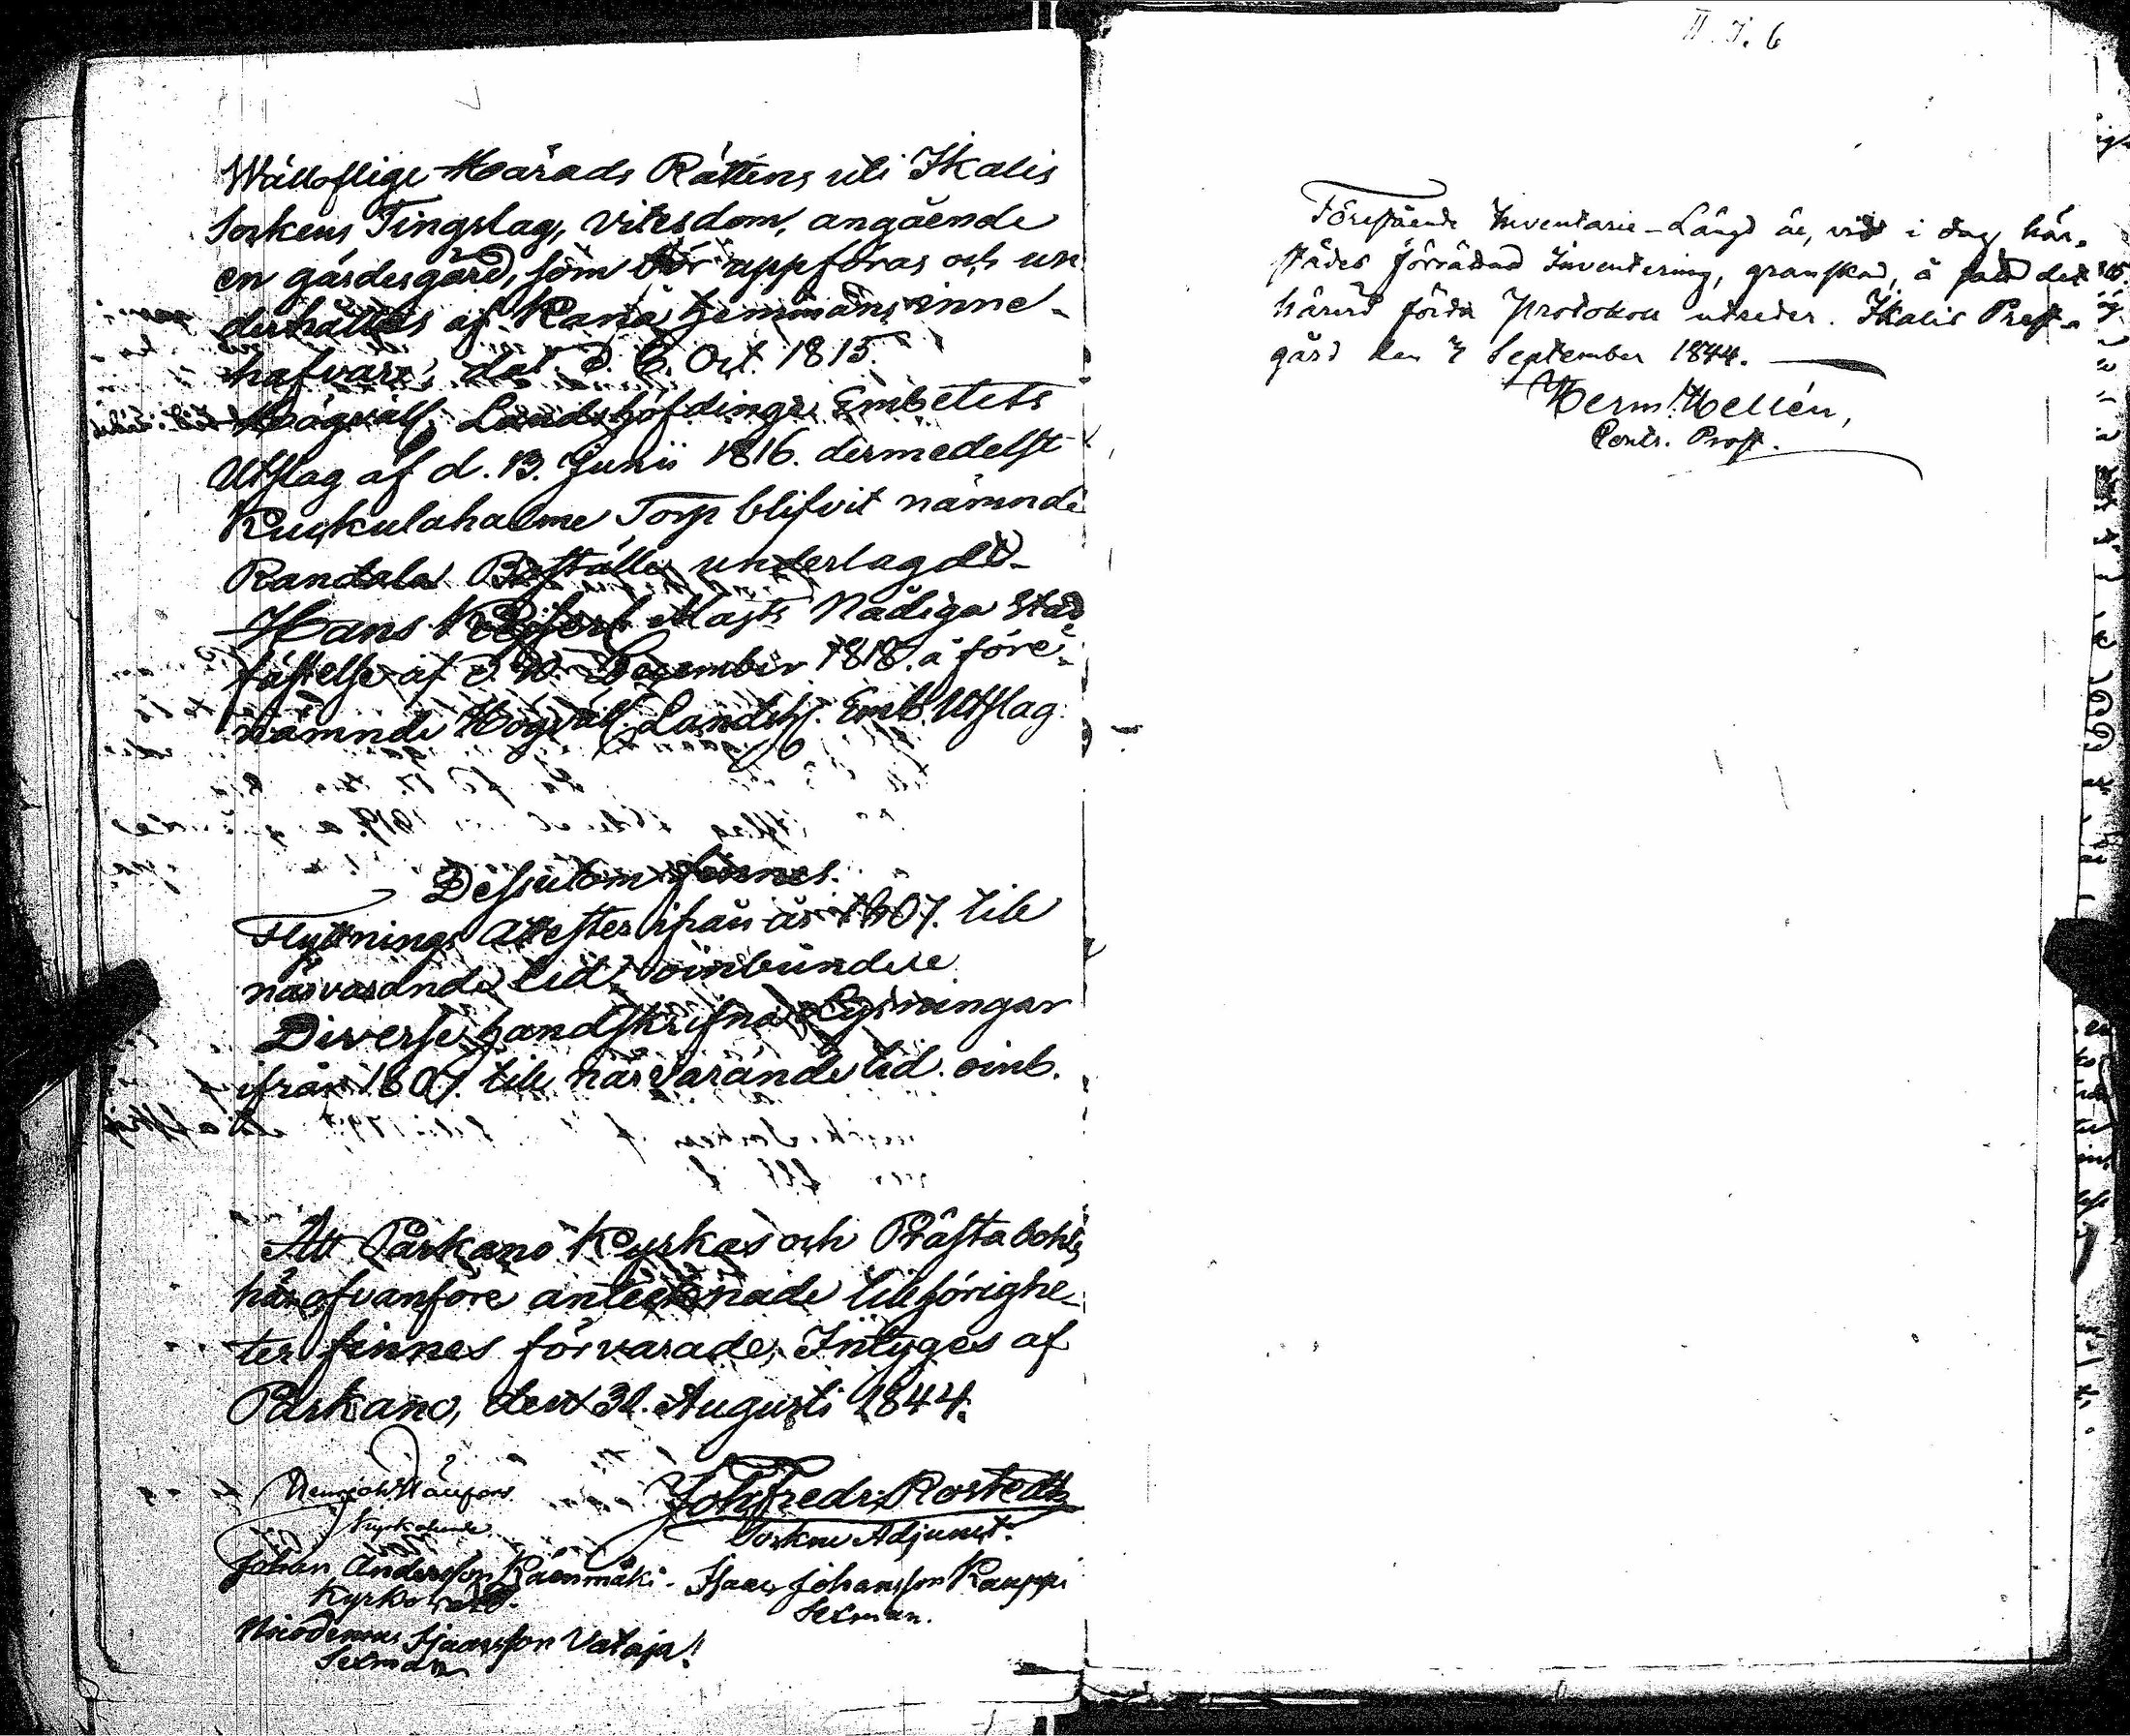 Wälloflige Härads Rättens uti Ikalis
Sockens Tingslag, vitesdom, angående
en gärdesgård, som bör uppföras och un
derhållas af Rana hemmans inne-
hafvare, dat. d. 6. Oct. 1815.
Högvälb. Landshöfdinge Embetets
Utslag af d. 13. Junii 1816. dermedelst
Kuckulahalme Torp blifvit nämnde
Randala Boställe underlagdt-
Hans Keiserl. Majts Nådiga Stad
fästelse af d. December 1818. å före-
nämnde Högvälb. Landsh. Emb. Utslag.
Dessutom finnes.
Flyttnings Attester ifrån år 1807. till
närvarande tid, oinbundne
Diverse handskrifna Lysningar
ifrån 1807. till närvarande tid. oinb.
Att Parkano Kyrkas och Prästabohls
här ofvanföre antecknade tillhörighe-
ter finnes förvarade, Intyges af
Parkano, den 31. Augusti 1844.
Joh. Fredr. Rostedt
Sockne Adjunct.
Johan Andersson Käenmäki. Isaac Johansson Kauppi
Kyrkovärd. Sexman.
Nicodemus Isaacsson Vataja!
Sexman
II. I. 6
Förestående Inventarie-Längd är, vid i dag här-
städes förrättad Inventering, granskad, å satt det
härvid förda Protokoll utreder. Ikalis Prest-
gård den 7 September 1844.
Herm. Hellén,
Contr. Prost.